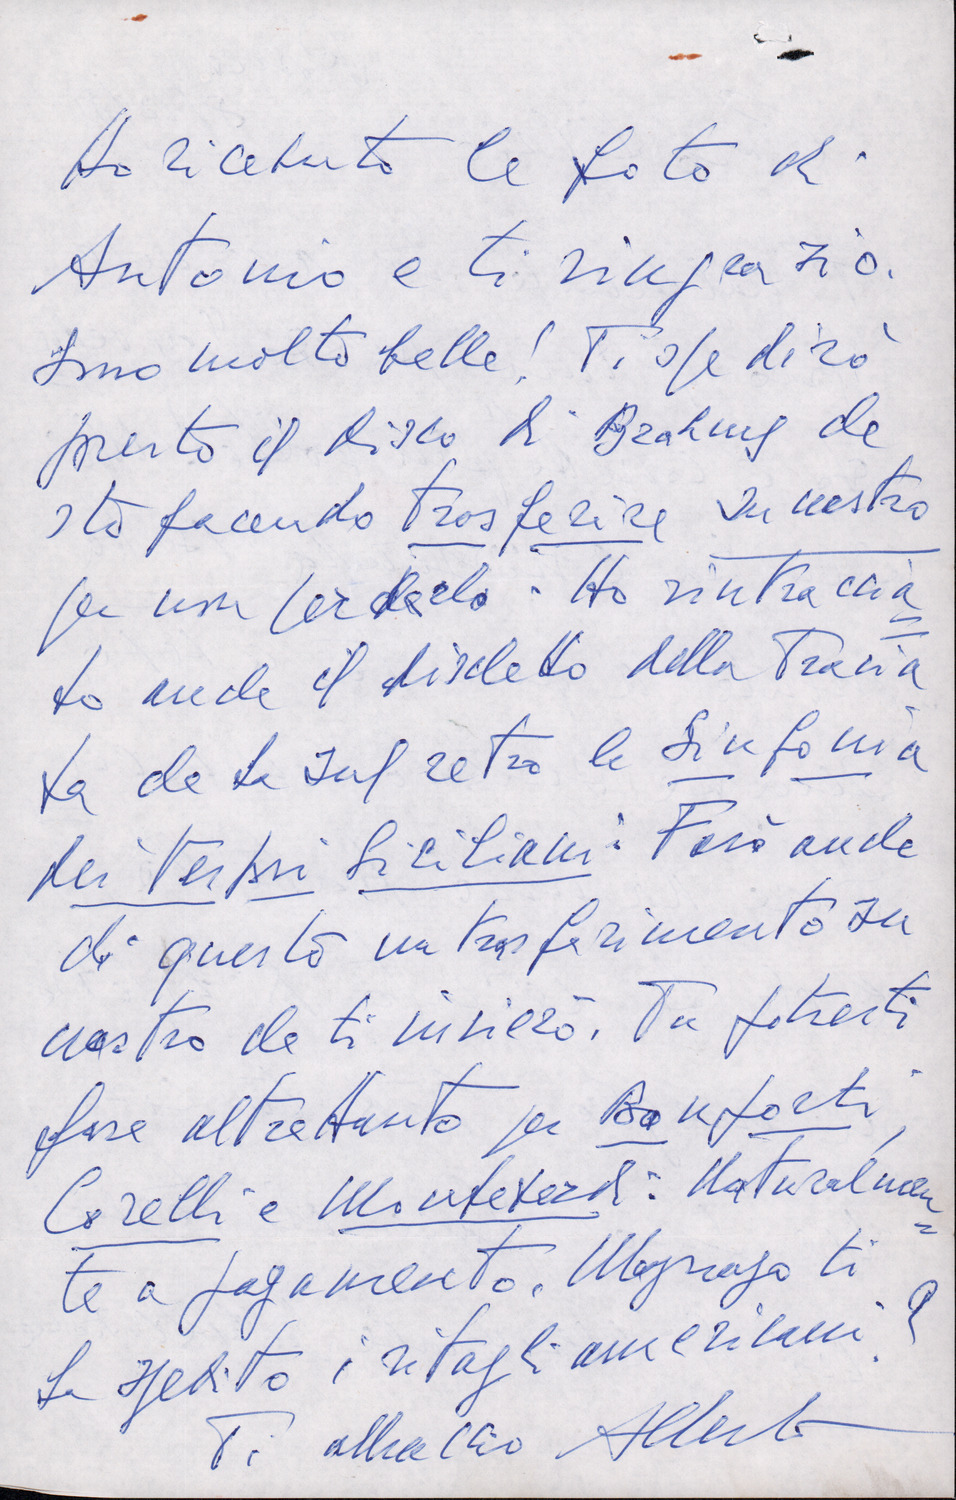 Ho ricevuto le foto di
Antonio e ti ringrazio.
Sono molto belle! Ti spedirò
presto il disco di Brahms che
stò facendo trasferire su nastro
per non perderlo. Ho rintraccia=
to anche il dischetto della Tracia
ta che ha sul retro la Sinfonia
dei Vespri Siciliani. Farò anche
di questo un trasferimento su
nastro che ti invierò. Tu potresti
fare altrettanto per Bonporti,
Corelli e Monteverdi. Naturalmen=
te a pagamento. Magnago ti
ha spedito i ritagli americani?
Ti abbraccio Alberto